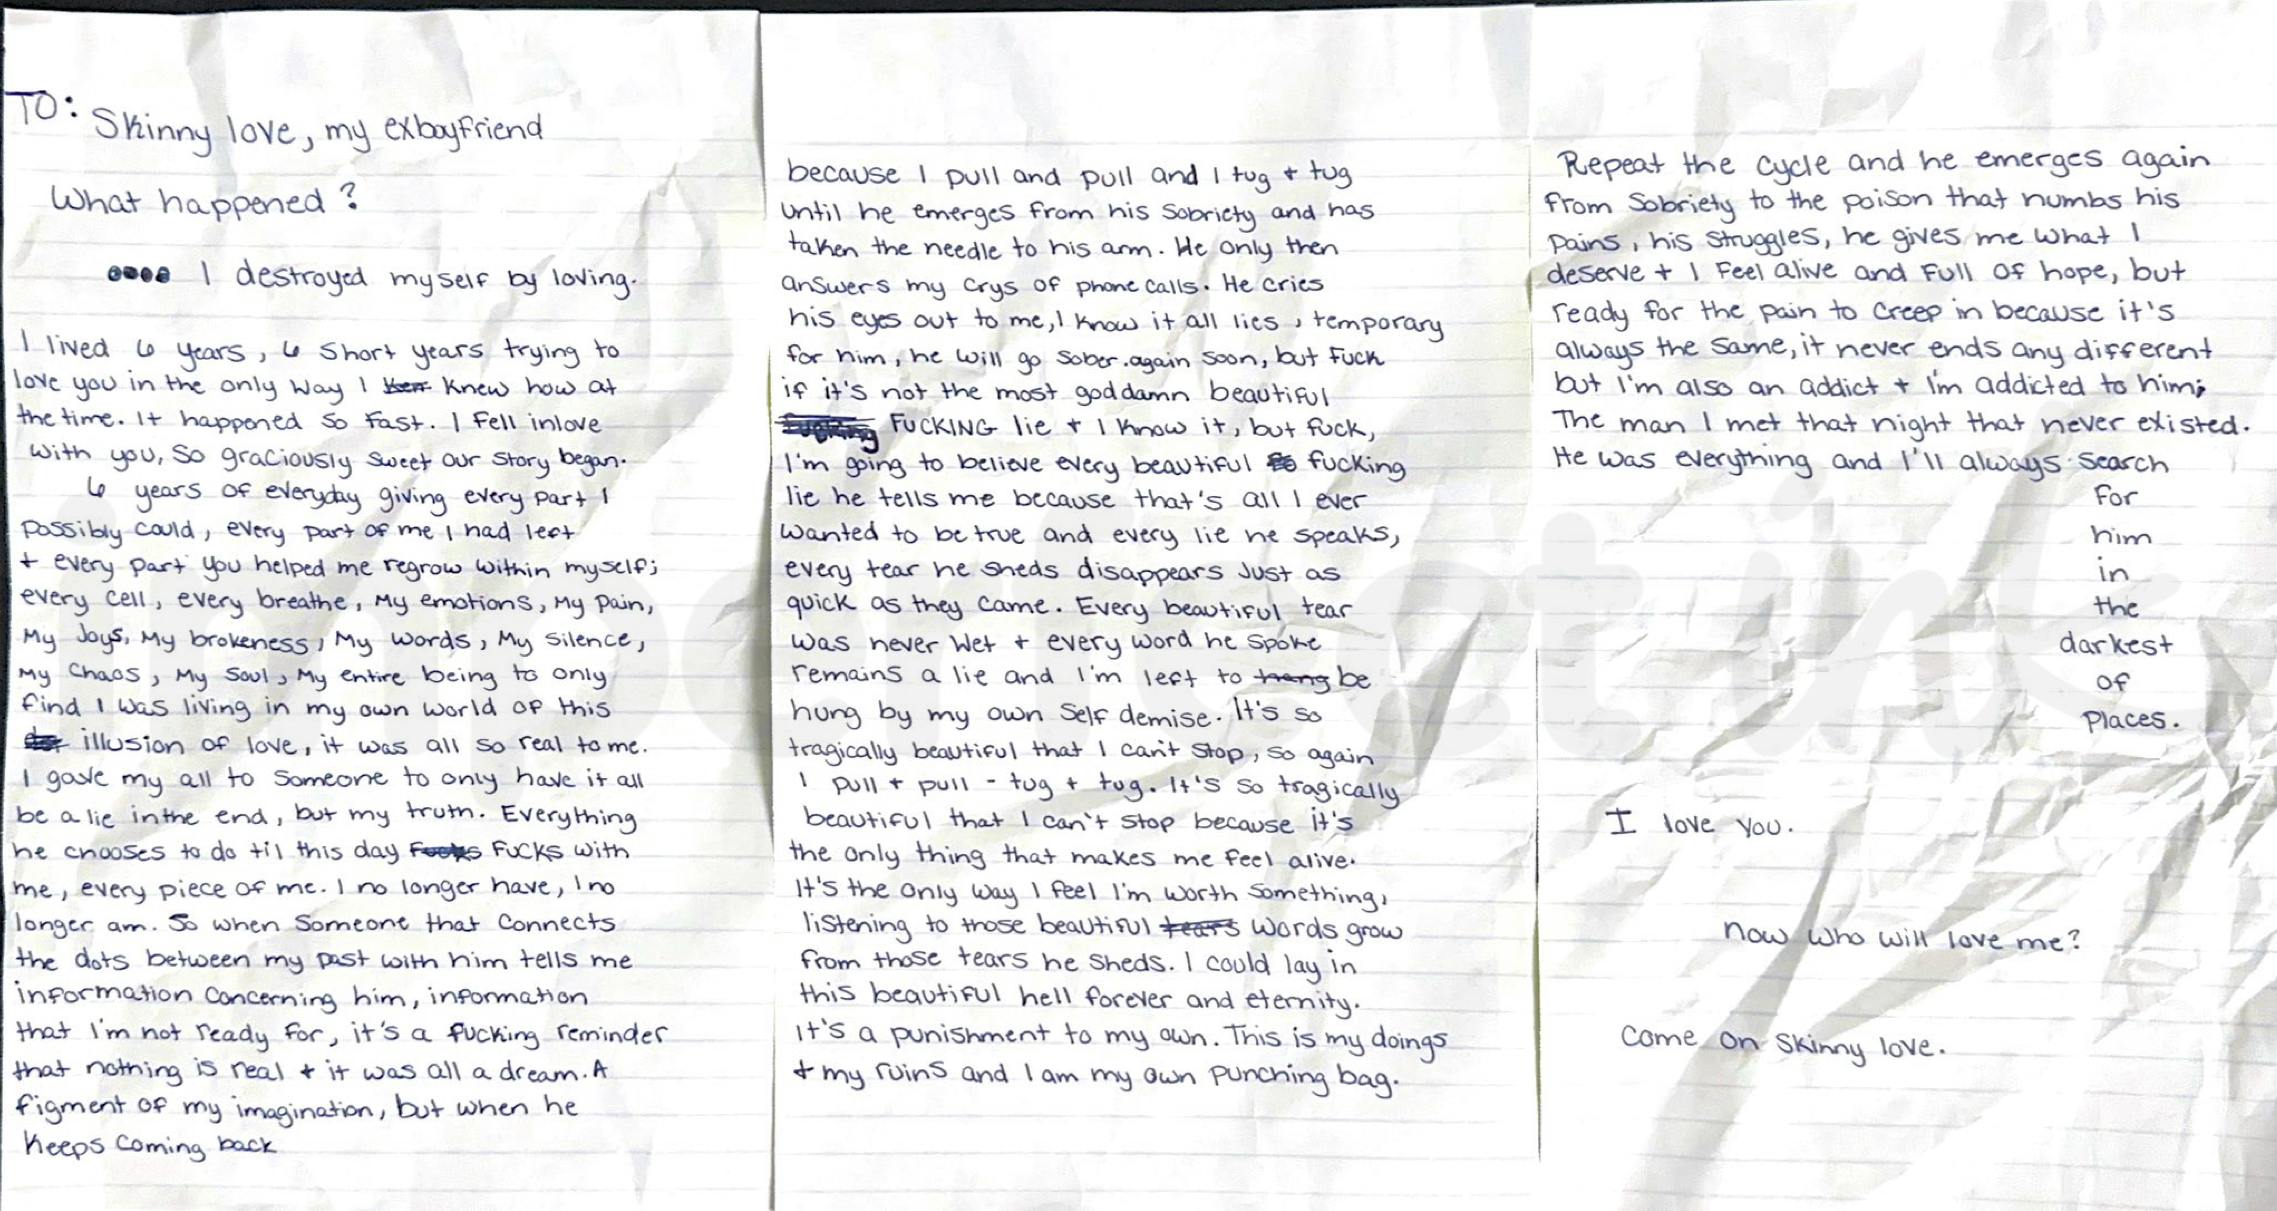 TO: Skinny love, my exboyfriend
What happened?
I destroyed myself by loving.
I lived 6 years, 6 short years trying to
love you in the only way I knew how at
the time. It happened so fast. I fell inlove
with you, so graciously sweet our story began.
6 years of everyday giving every part I
possibly could, every part of me I had left
+ every part you helped me regrow within myself;
every cell, every breathe, My emotions, My pain,
My Joys, My brokeness, My words, My silence,
My Chaos, My Soul, My entire being to only
find I was living in my own world of this
illusion of love, it was all so real to me.
I gave my all to someone to only have it all
be a lie inthe end, but my truth. Everything
he chooses to do til this day Fucks Fucks with
me, every piece of me. I no longer have, I no
longer am. So when someone that connects
the dots between my past with him tells me
information concerning him, information
that I'm not ready for, it's a fucking reminder
that nothing is real + it was all a dream. A
figment of my imagination, but when he
keeps coming back
because I pull and pull and I tug + tug
until he emerges from his sobriety and has
taken the needle to his arm. He only then
answers my crys of phone calls. He cries
his eyes out to me, I know it all lies, temporary
for him, he will go sober.again soon, but Fuck
if it's not the most goddamn beautiful
fucking FUCKING lie + I know it, but fuck,
I'm going to believe every beautiful fucking
lie he tells me because that's all I ever
wanted to be true and every lie he speaks,
every tear he sheds disappears Just as
quick as they came. Every beautiful tear
was never wet + every word he spoke
remains a lie and I'm left to hang be
hung by my own self demise. It's so
tragically beautiful that I can't stop, so again
I pull + pull - tug + tug. It's so tragically
beautiful that I can't stop because it's
the only thing that makes me feel alive.
It's the only way I feel I'm worth something,
listening to those beautiful tears words grow
from those tears he sheds. I could lay in
this beautiful hell forever and eternity.
It's a punishment to my own. This is my doings
+ my ruins and I am my own punching bag.
Repeat the cycle and he emerges again
from Sobriety to the poison that numbs his
pains, his struggles, he gives me what I
deserve + I feel alive and full of hope, but
ready for the pain to creep in because it's
always the same, it never ends any different
but I'm also an addict + I'm addicted to him;
The man I met that night that never existed.
He was everything and I'll always search
for
him
in
the
darkest
of
places.
I love you.
now who will love me?
come on skinny love.